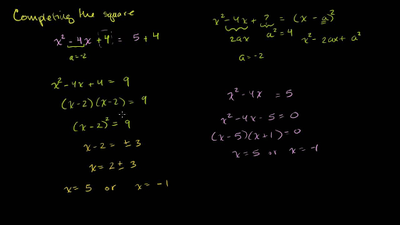 Completing the square
x² - 4x + 4 = 5 + 4
a = -2
x² - 4x + 4 = 9
(x-2)(x-2) = 9
(x-2)² = 9
x-2 = ± 3
x = 2 ± 3
x = 5 or x = -1
x² - 4x + ? = (x - a)²
2ax a² = 4 x² - 2ax + a²
a = -2
x² - 4x = 5
x² - 4x - 5 = 0
(x-5)(x+1) = 0
x = 5 or x = -1